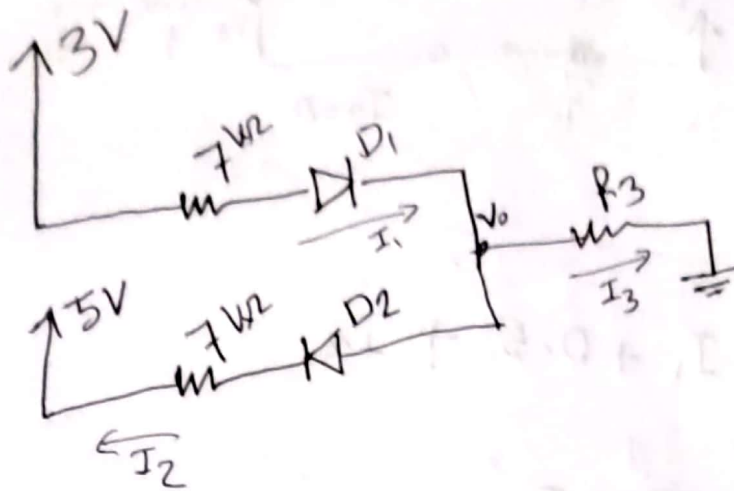 3V
7 kΩ
D1
I1
V0
R3
I3
5V
7 kΩ
D2
I2